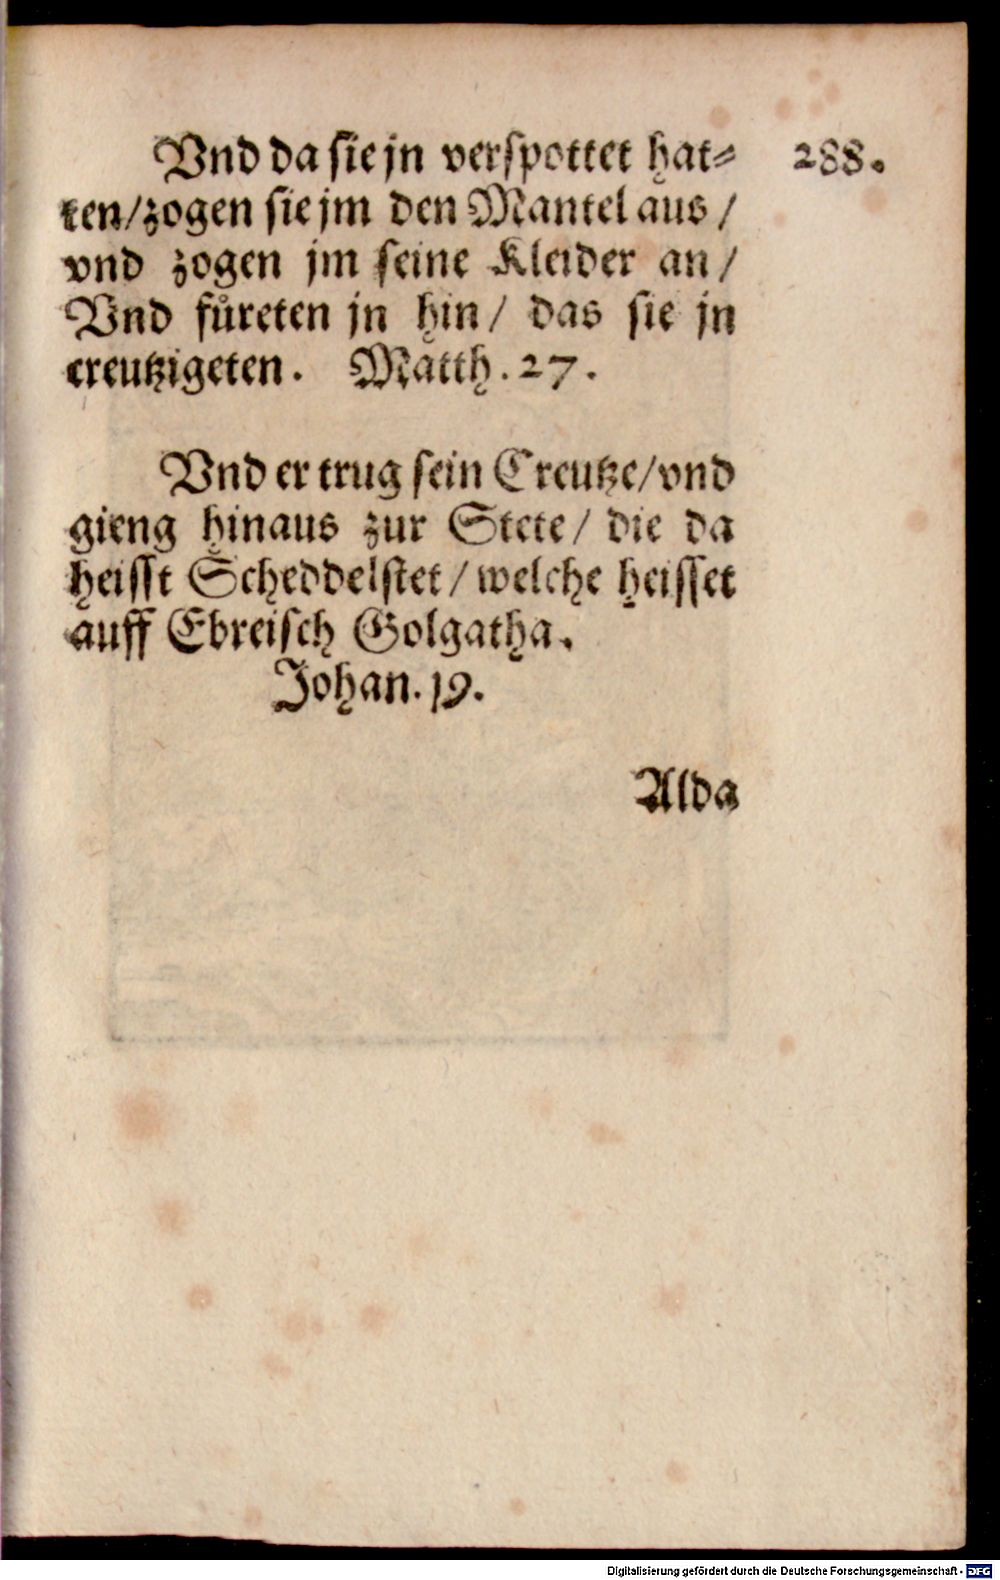 Vnd da sie jn verspottet hat⸗ 288.
ten/ zogen sie jm den Mantel aus /
vnd zogen jm seine Kleider an /
Vnd fuͤreten jn hin / das sie jn
creutzigeten. Matth. 27.
Vnd er trug sein Creutze / vnd
gieng hinaus zur Stete / die da
heisst Scheddelstet / welche heisset
auff Ebreisch Golgatha.
Johan. 19.
Alda
Digitalisierung gefördert durch die Deutsche Forschungsgemeinschaft - DFG